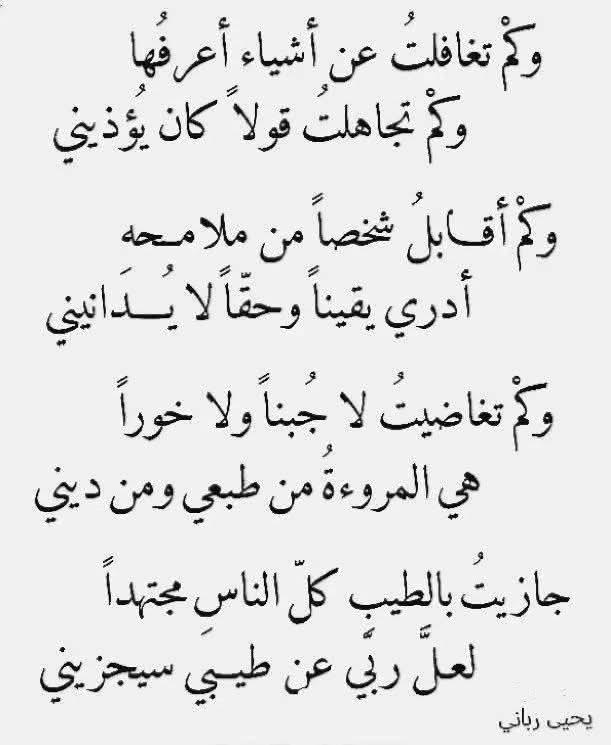 وكمْ تغافلتُ عن أشياء أعرفُها
وكمْ تجاهلتُ قولاً كان يُؤذيني
وكمْ أقـابلُ شخصاً من ملامـحه
أدري يقيناً وحقّاً لا يُـــدَانيني
وكمْ تغاضيتُ لا جُبناً ولا خوراً
هي المروءةُ من طبعي ومن ديني
جازيتُ بالطيبِ كلّ الناسِ مجتهداً
لعـلَّ ربَّي عن طيـبَي سيجزيني
يحيى رباني